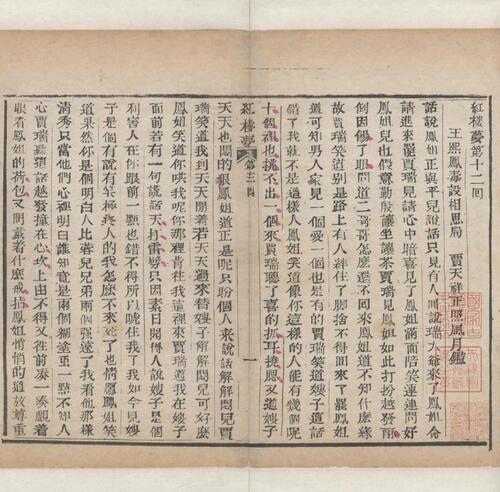 紅樓夢第十二回
王熙鳳毒設相思局　賈天祥正照風月鑑
話說鳳姐正與平兒說話只見有人回說瑞大爺來了鳳姐命
請進來罷賈瑞見請心中暗喜見了鳳姐滿面陪笑連連問好
鳳姐兒也假意殷勤讓坐讓茶賈瑞見鳳姐如此打扮越發酥
倒因餳了眼問道二哥哥怎麼還不回來鳳姐道不知什麼緣
故賈瑞笑道別是路上有人絆住了脚捨不得回來了罷鳳姐
道可知男人家見一個愛一個也是有的賈瑞笑道嫂子這話
錯了我就不是這樣人鳳姐笑道像你這樣的人能有幾個呢
十個裡也挑不出一個來賈瑞聽了喜的抓耳撓腮又道嫂子
天天也悶的狠鳳姐道正是呢只盼個人來說話解解悶兒賈
瑞笑道我倒天天閒着若天天過來替嫂子解解悶兒可好麼
鳳姐笑道你哄我呢你那裡肯往我這裡來賈瑞道我在嫂子
面前若有一句謊話天打雷劈只因素日聞得人說嫂子是個
利害人在你跟前一點也錯不得所以唬住我了我如今見嫂
子是個有說有笑極疼人的我怎麼不來死了也情愿鳳姐笑
道果然你是個明白人比蓉兒兄弟兩個強遠了我看他那樣
清秀只當他們心裡明白誰知竟是兩個糊塗虫一點不知人
心賈瑞聽這話越發撞在心坎上由不得又往前凑一凑覷着
眼看鳳姐的荷包又問戴着什麼戒指鳳姐悄悄的道放尊重
紅樓夢
第十二回
一